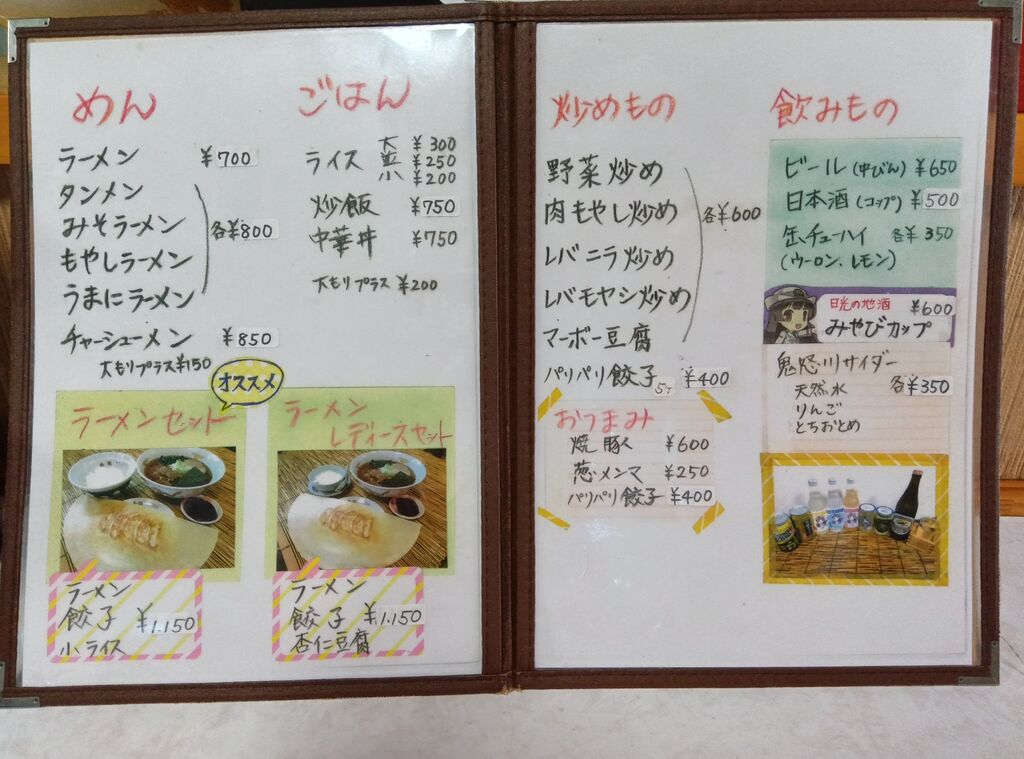 めん
ラーメン ¥700
タンメン
みそラーメン
もやしラーメン
うまにラーメン
各¥800
チャーシューメン ¥850
大もりプラス¥150
ごはん
ライス
大 ¥300
並 ¥250
小 ¥200
炒飯 ¥750
中華丼 ¥750
大もりプラス ¥200
オススメ
ラーメンセット
ラーメン
餃子
小ライス
¥1.150
ラーメン
レディースセット
ラーメン
餃子
杏仁豆腐
¥1.150
炒めもの
野菜炒め
肉もやし炒め
レバニラ炒め
レバモヤシ炒め
マーボー豆腐
各¥600
パリパリ餃子 5ケ ¥400
おつまみ
焼豚 ¥600
葱メンマ ¥250
パリパリ餃子 ¥400
飲みもの
ビール(中びん) ¥650
日本酒(コップ) ¥500
缶チューハイ 各¥350
(ウーロン、レモン)
日光の地酒
みやびカップ ¥600
鬼怒川サイダー
天然水
りんご
とちおとめ
各¥350